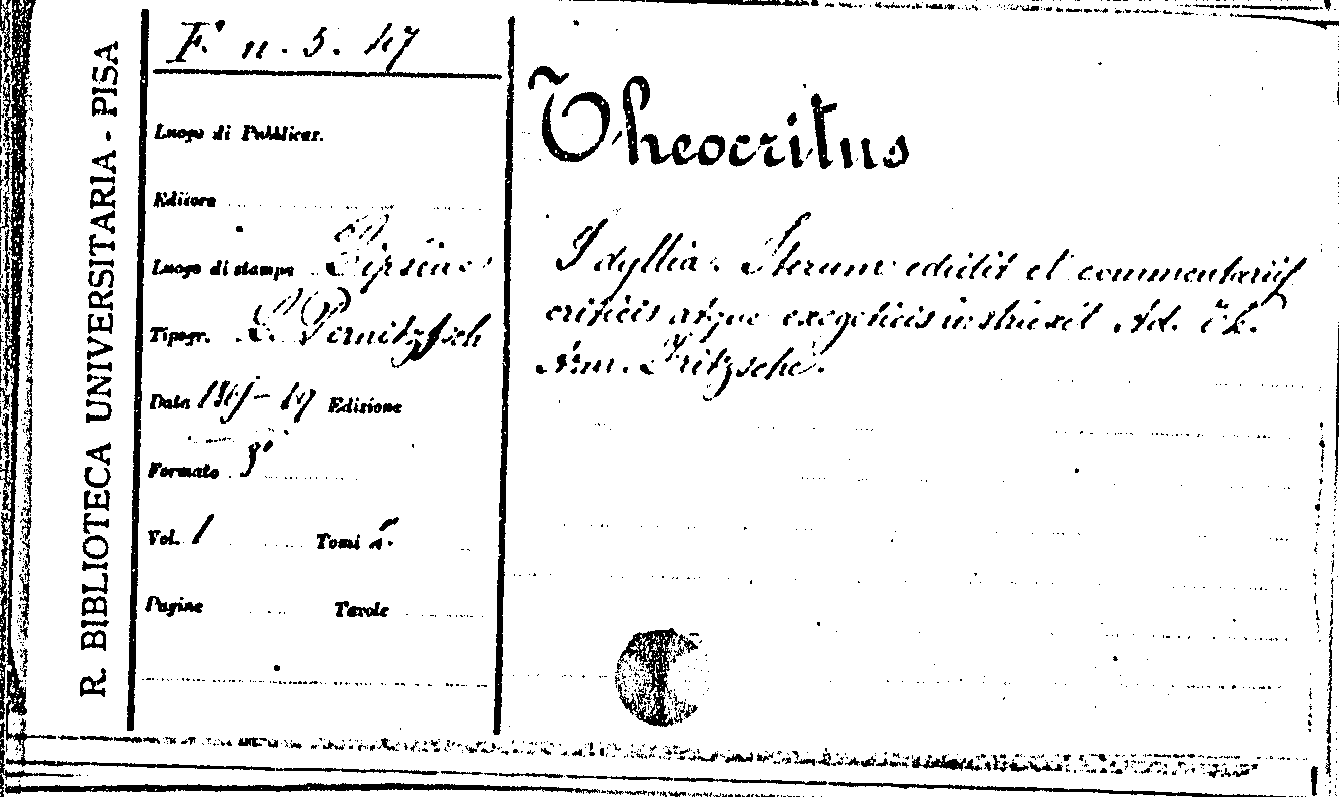 R. BIBLIOTECA UNIVERSITARIA - PISA
F. n. 5. 47
Luogo di Pubblicaz.
Editore
Luogo di stampa Lipsiae
Tipogr. L. Pernitzsch
Data 1865-69 Edizione
Formato 8°
Vol. 1 Tomi 2.
Pagine Tavole
Theocritus
Idyllia. Iterum edidit et commentariis
criticis atque exegeticis instruxit Ad. Th.
Arm. Fritzsche.